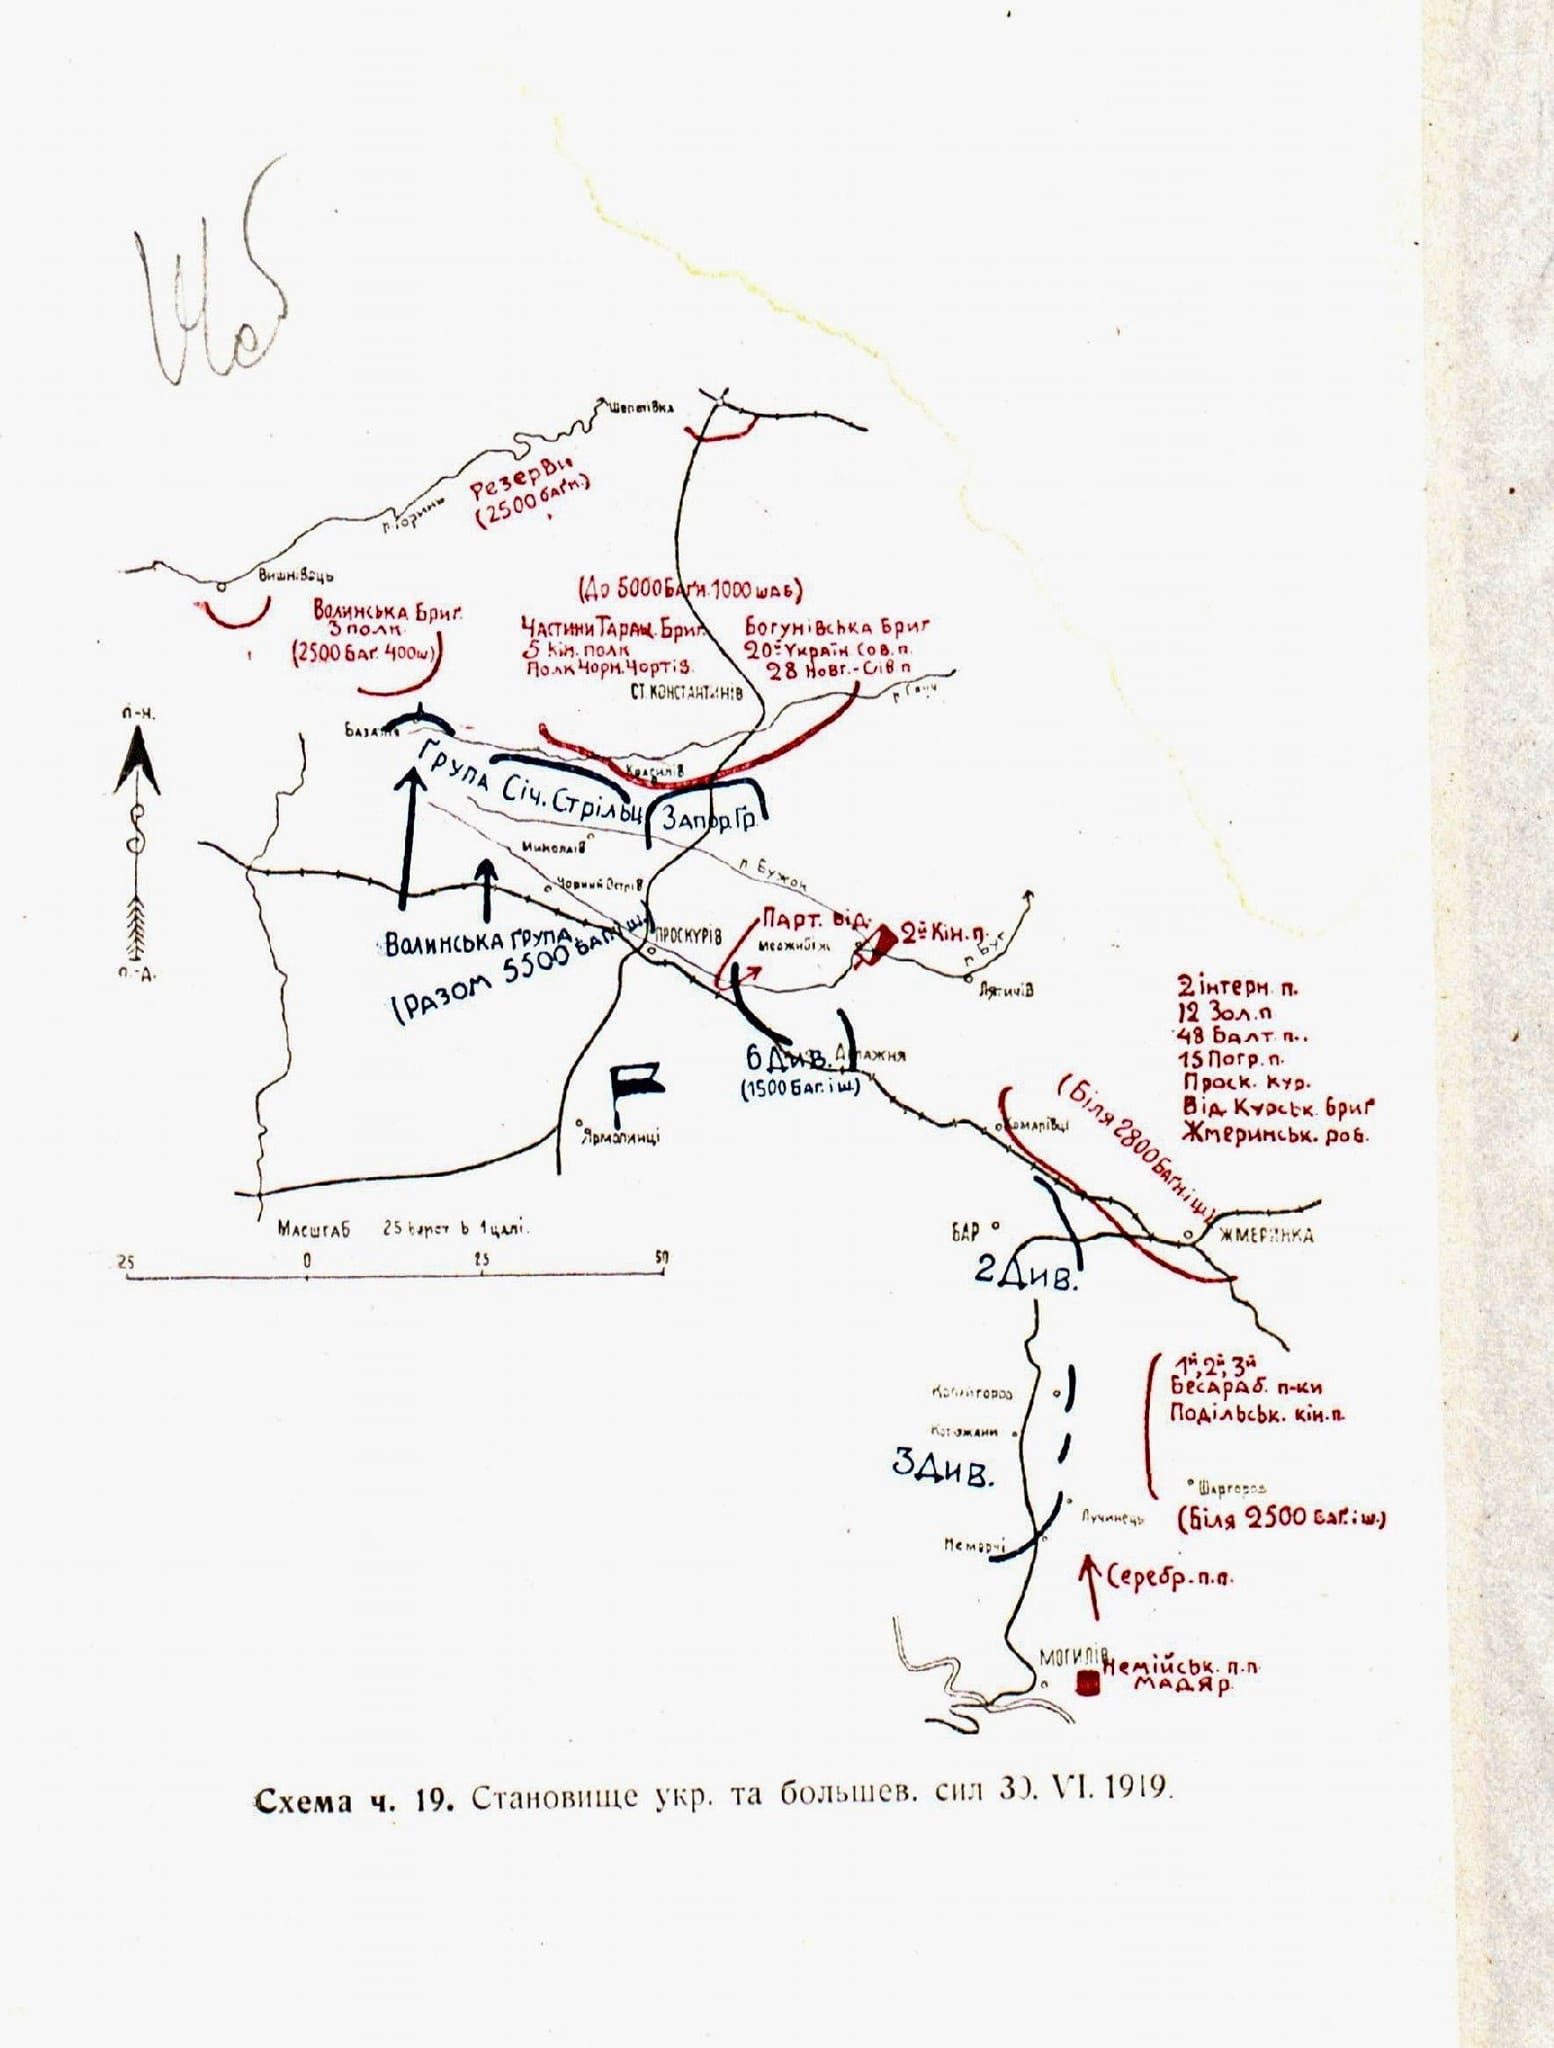 Шепетівка
Резерви
(2500 багн.)
р. Горинь
Вишнівець
Волинська Бриг.
3 полк
(2500 Баг. 400ш)
(До 5000 Багн. 1000 шаб)
Частини Таращ. Бриг.
5 кін. полк
Полк Чорн. Чортів.
Богунівська Бриг
20й Україн Сов. п.
28 Новг.-Сів п
Ст. Константинів
р. Случ
п.-н.
п.-д.
Базалія
Ґрупа Січ. Стрільц
Красилів
Запор. Гр.
Миколаїв
р. Бужок
Чорний Острів
Волинська ґрупа
(разом 5500 баг. і ш.)
Проскурів
Парт. від.
Межибіж
2й Кін. п.
р. Буг
Лятичів
6 Див.
(1500 Баг. і ш.)
Ярмолинці
2 інтерн. п.
12 Зол. п
48 Балт. п..
15 Погр. п.
Проск. кур.
Від. Курськ. бриґ
Жмеринськ. роб.
Комарівці
(Біля 2800 багн і ш.)
Масштаб 25 верст в 1 цалі.
25 0 25 50
Бар
Жмеринка
2 Див.
1й, 2й, 3й
Бесараб. п-ки
Подільськ. кін. п.
Копайгород
Котюжани
3 Див.
Шаргород
Лучинець
(Біля 2500 баг. і ш.)
Немерчі
Серебр. п. п.
Могилів
Немійськ. п. п
Мадяр.
Схема ч. 19. Становище укр. та большев. сил 30. VI. 1919.